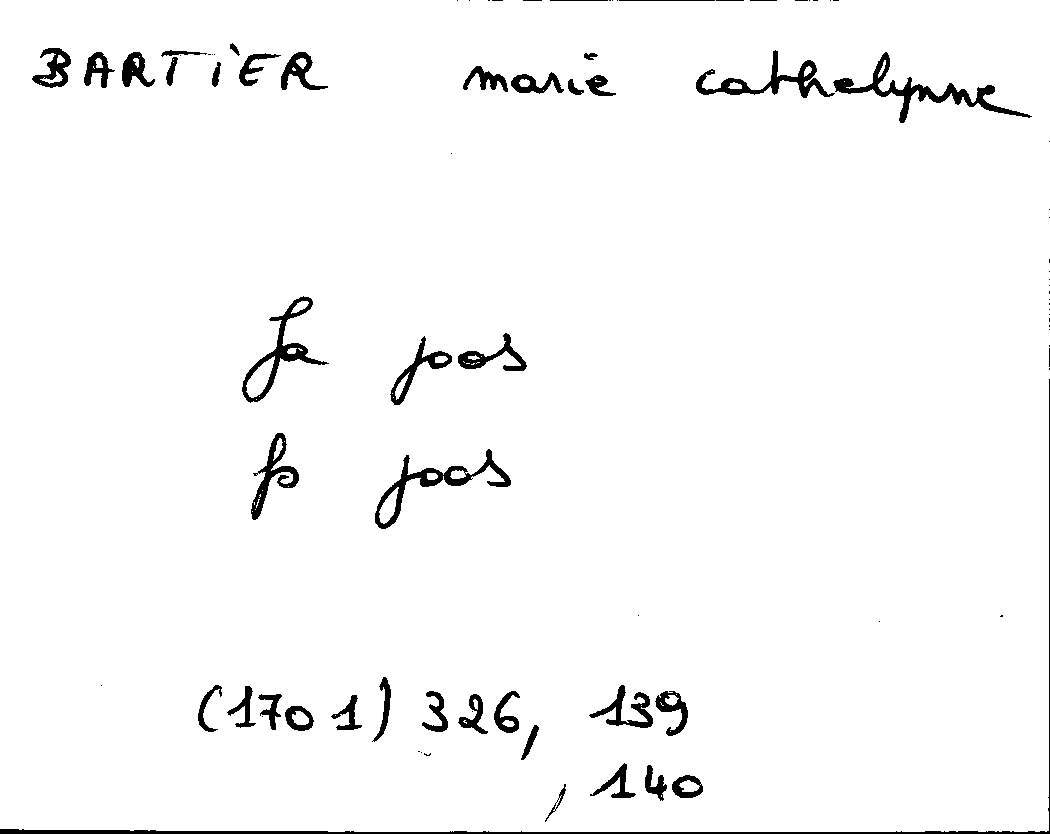 BARTIER marie cathelynne
fa joos
fs joos
(1701) 326, 139
, 140